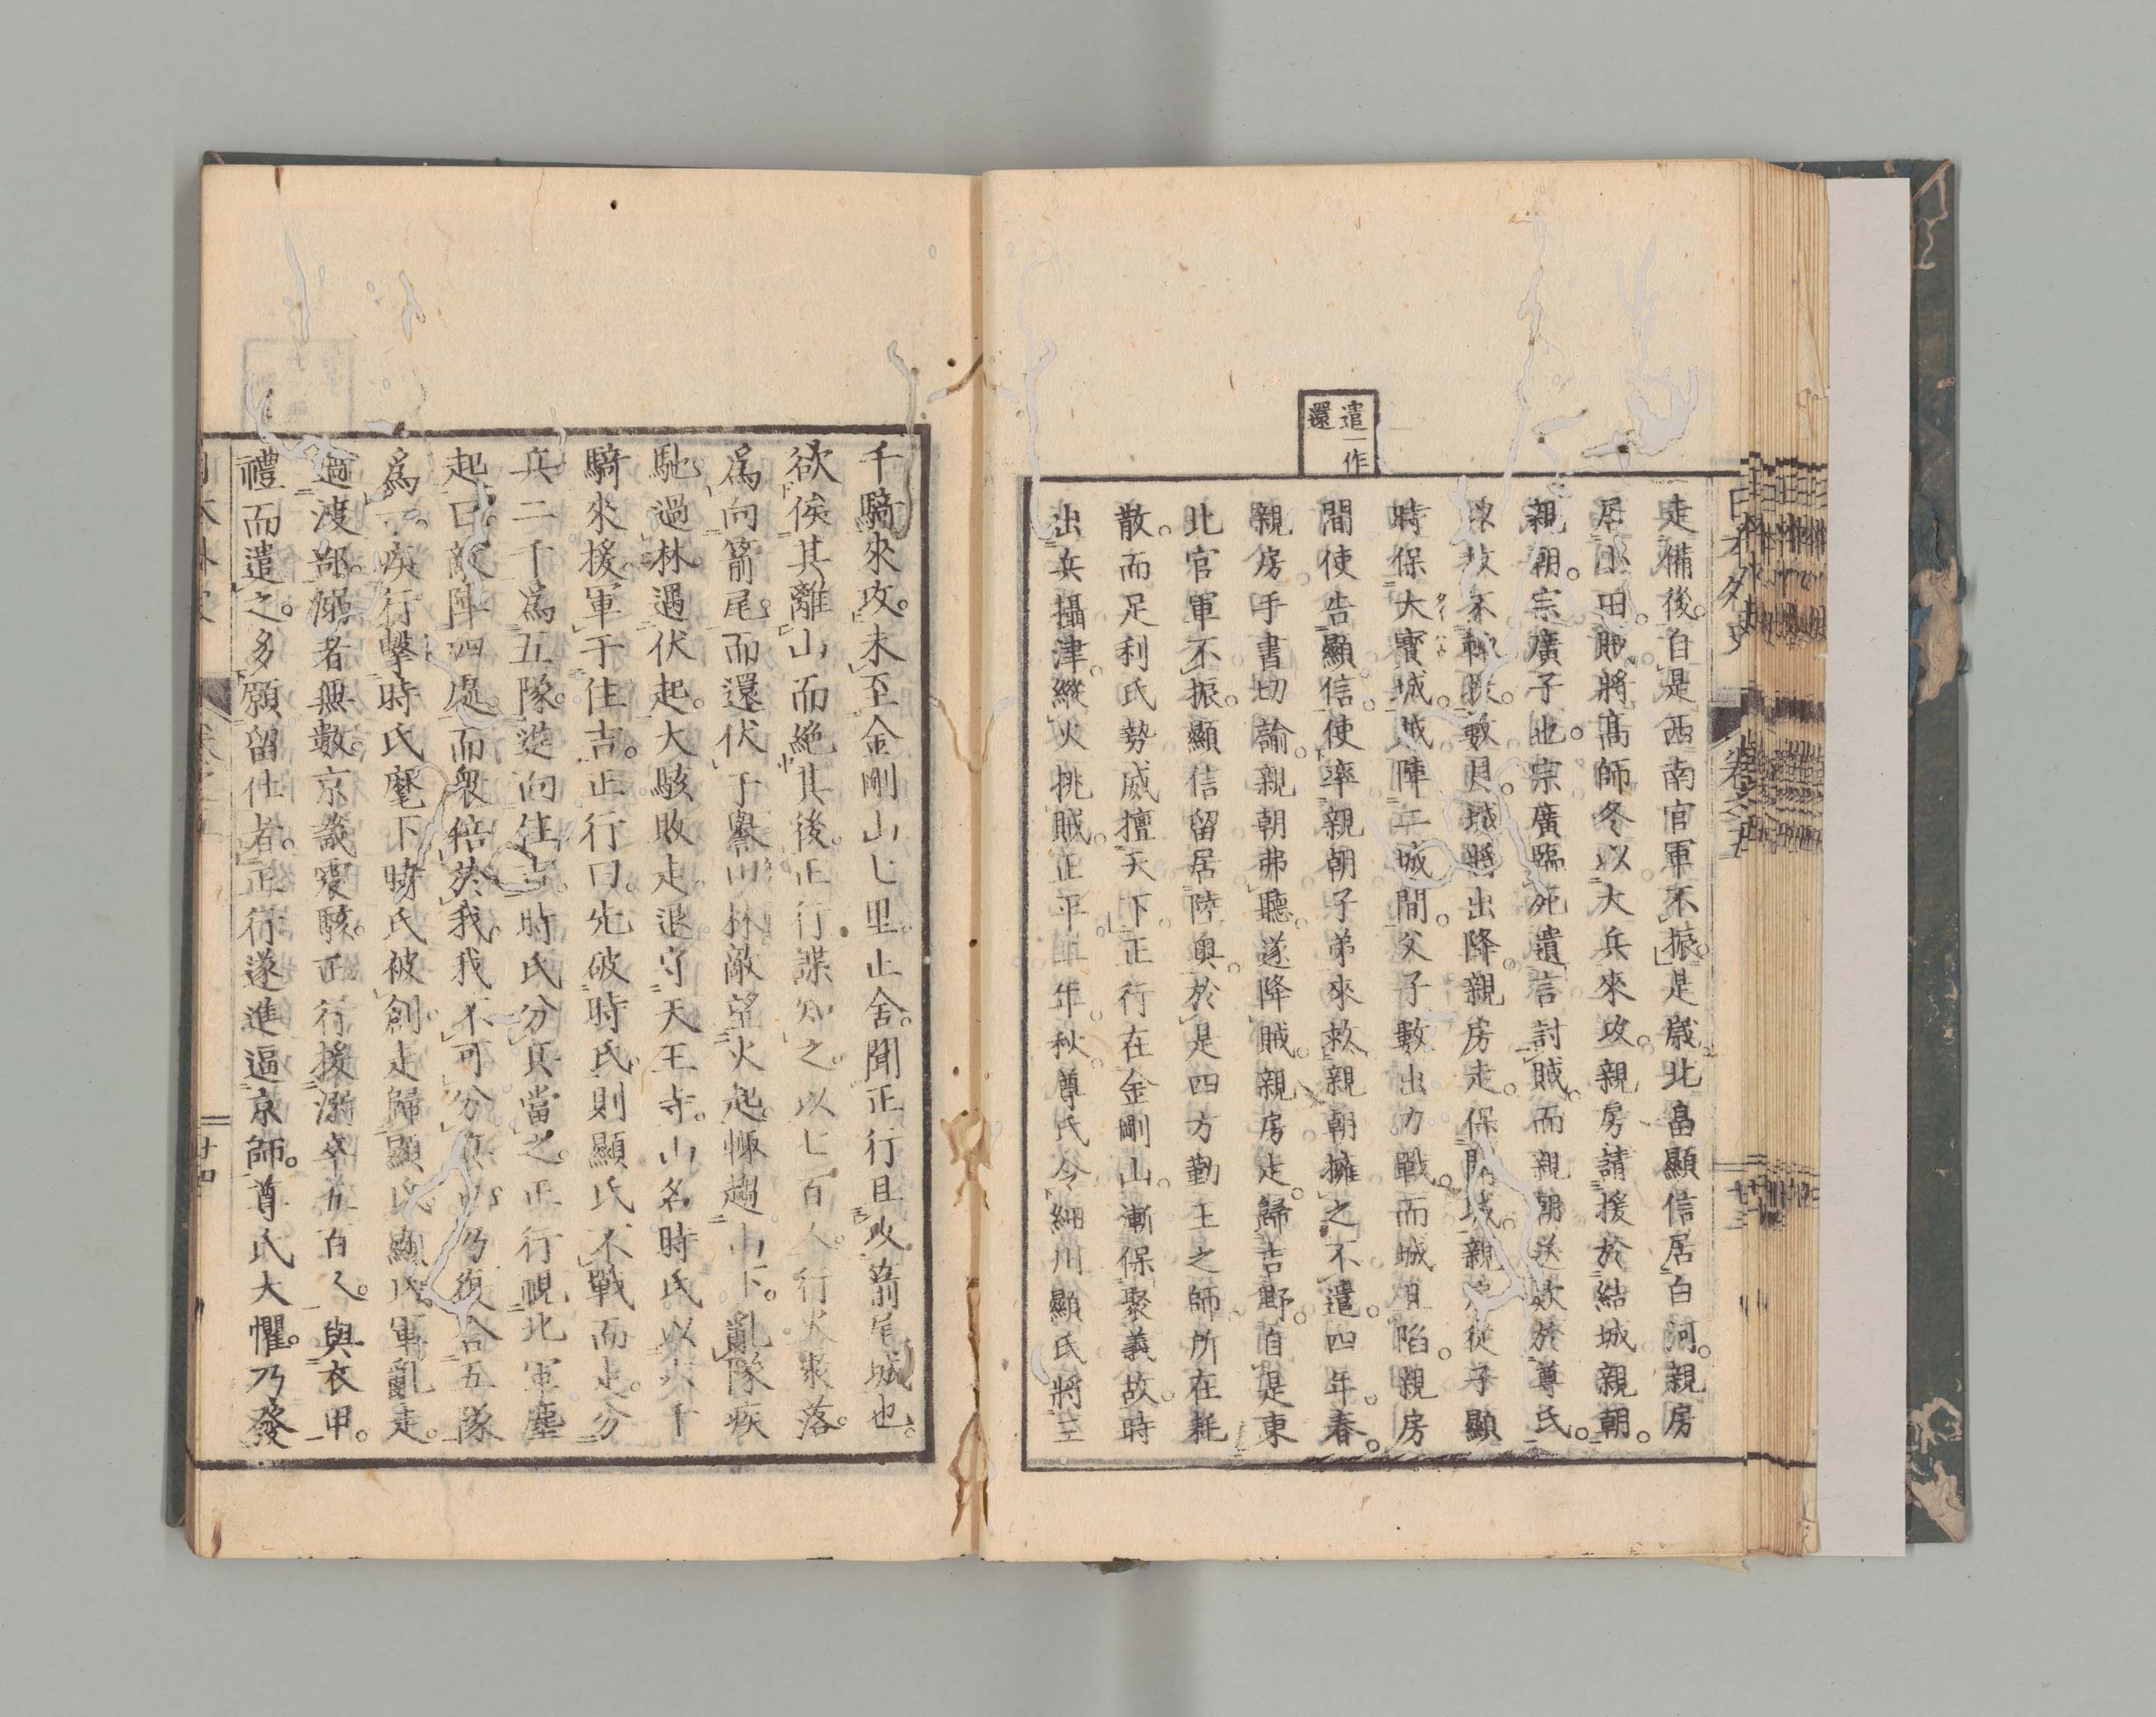 遣一作
還
走備後。自是西南官軍不振。是歳北畠顯信居白河。親房
居小田。賊將高師冬以大兵來攻。親房請援於結城親朝。
親朝。宗廣子也。宗廣臨死遺言討賊。而親朝送款於尊氏。
故不輒援。數月。城將出降。親房走。保關城。親房從子顯
時保大寶城。賊陣二城間。父子數出力戰。而城且陷。親房
間使告顯信。使率親朝子弟來救。親朝擁之不遣。四年。春。
親房手書切諭。親朝弗聽。遂降賊。親房走歸吉野。自是東
北官軍不振。顯信留居陸奥。於是四方勤王之師所在耗
散。而足利氏勢威擅天下。正行在金剛山。漸保聚義故。時
出兵攝津。縱火挑賊。正平二年。秋。尊氏令細川顯氏將三
千騎來攻。未至金剛山七里。止舍。聞正行且攻箭尾城也。
欲俟其離山而絶其後。正行諜知之。以七百人。行火聚落。
爲向箭尾。而還伏于譽田林。敵望火起。極趨山下。亂隊疾
馳過林。遇伏起。大駭敗走。退守天王寺。山名時氏以六千
騎來援。軍于住吉。正行曰。先破時氏。則顯氏不戰而走。分
兵二千爲五隊。進向住吉。時氏分兵當之。正行覘北軍塵
起曰。敵陣四處。而衆倍於我。我不可分兵也。乃復合五隊
爲一。疾行擊時氏麾下。時氏被創。走歸顯氏。顯氏軍亂走。
過渡部。溺者無數。京畿震駭。正行援溺卒五百人。與衣甲。
禮而遣之。多願留仕者。正行遂進逼京師。尊氏大懼。乃發